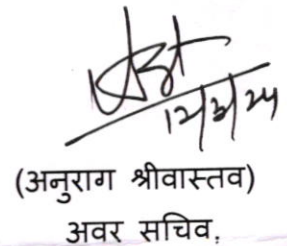 12/3/24
(अनुराग श्रीवास्तव)
अवर सचिव.